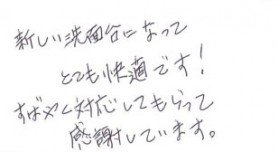 新しい洗面台になって
とても快適です!
すばやく対応してもらって
感謝しています。